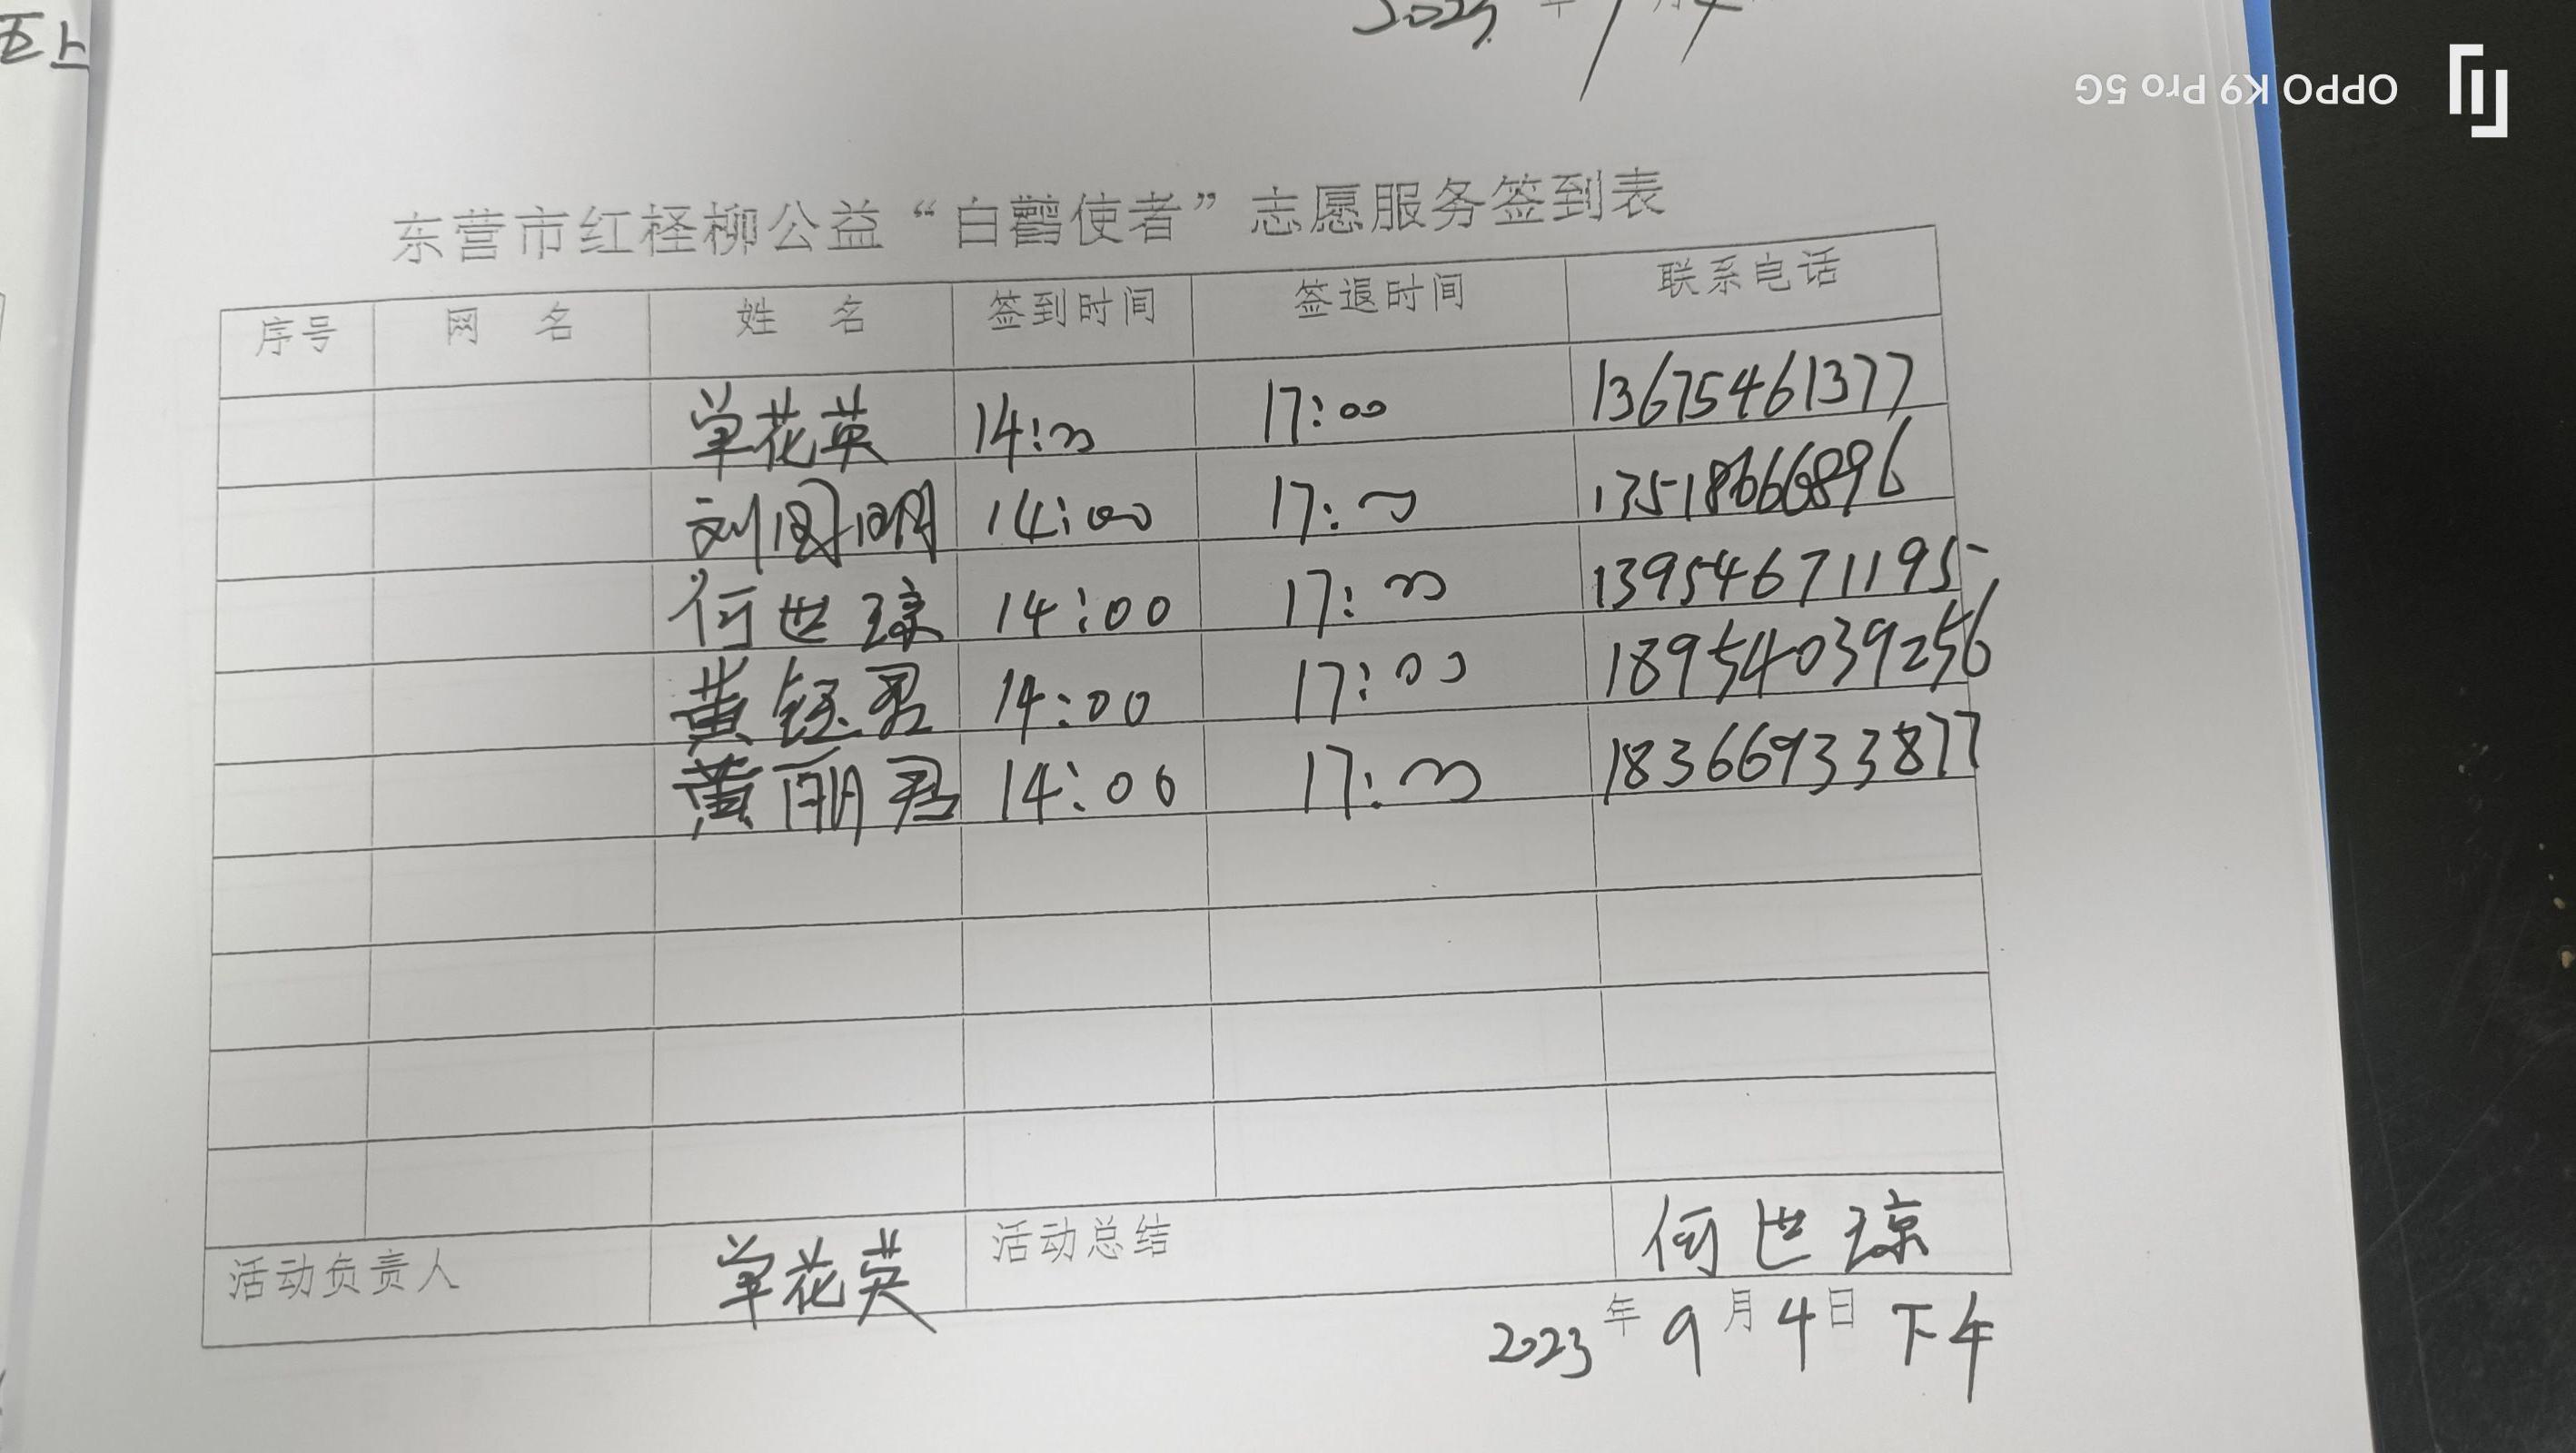 五上
2023年9月4
OPPO K9 Pro 5G
东营市红柽柳公益“白鹳使者”志愿服务签到表
序号 网 名 姓 名 签到时间 签退时间 联系电话
单花英 14:00 17:00 13675461377
刘国明 14:00 17:00 13518666896
何世琼 14:00 17:00 13954671195
黄钰君 14:00 17:00 18954039256
黄丽君 14:00 17:00 18366933877
活动负责人 单花英 活动总结 何世琼
2023年9月4日下午